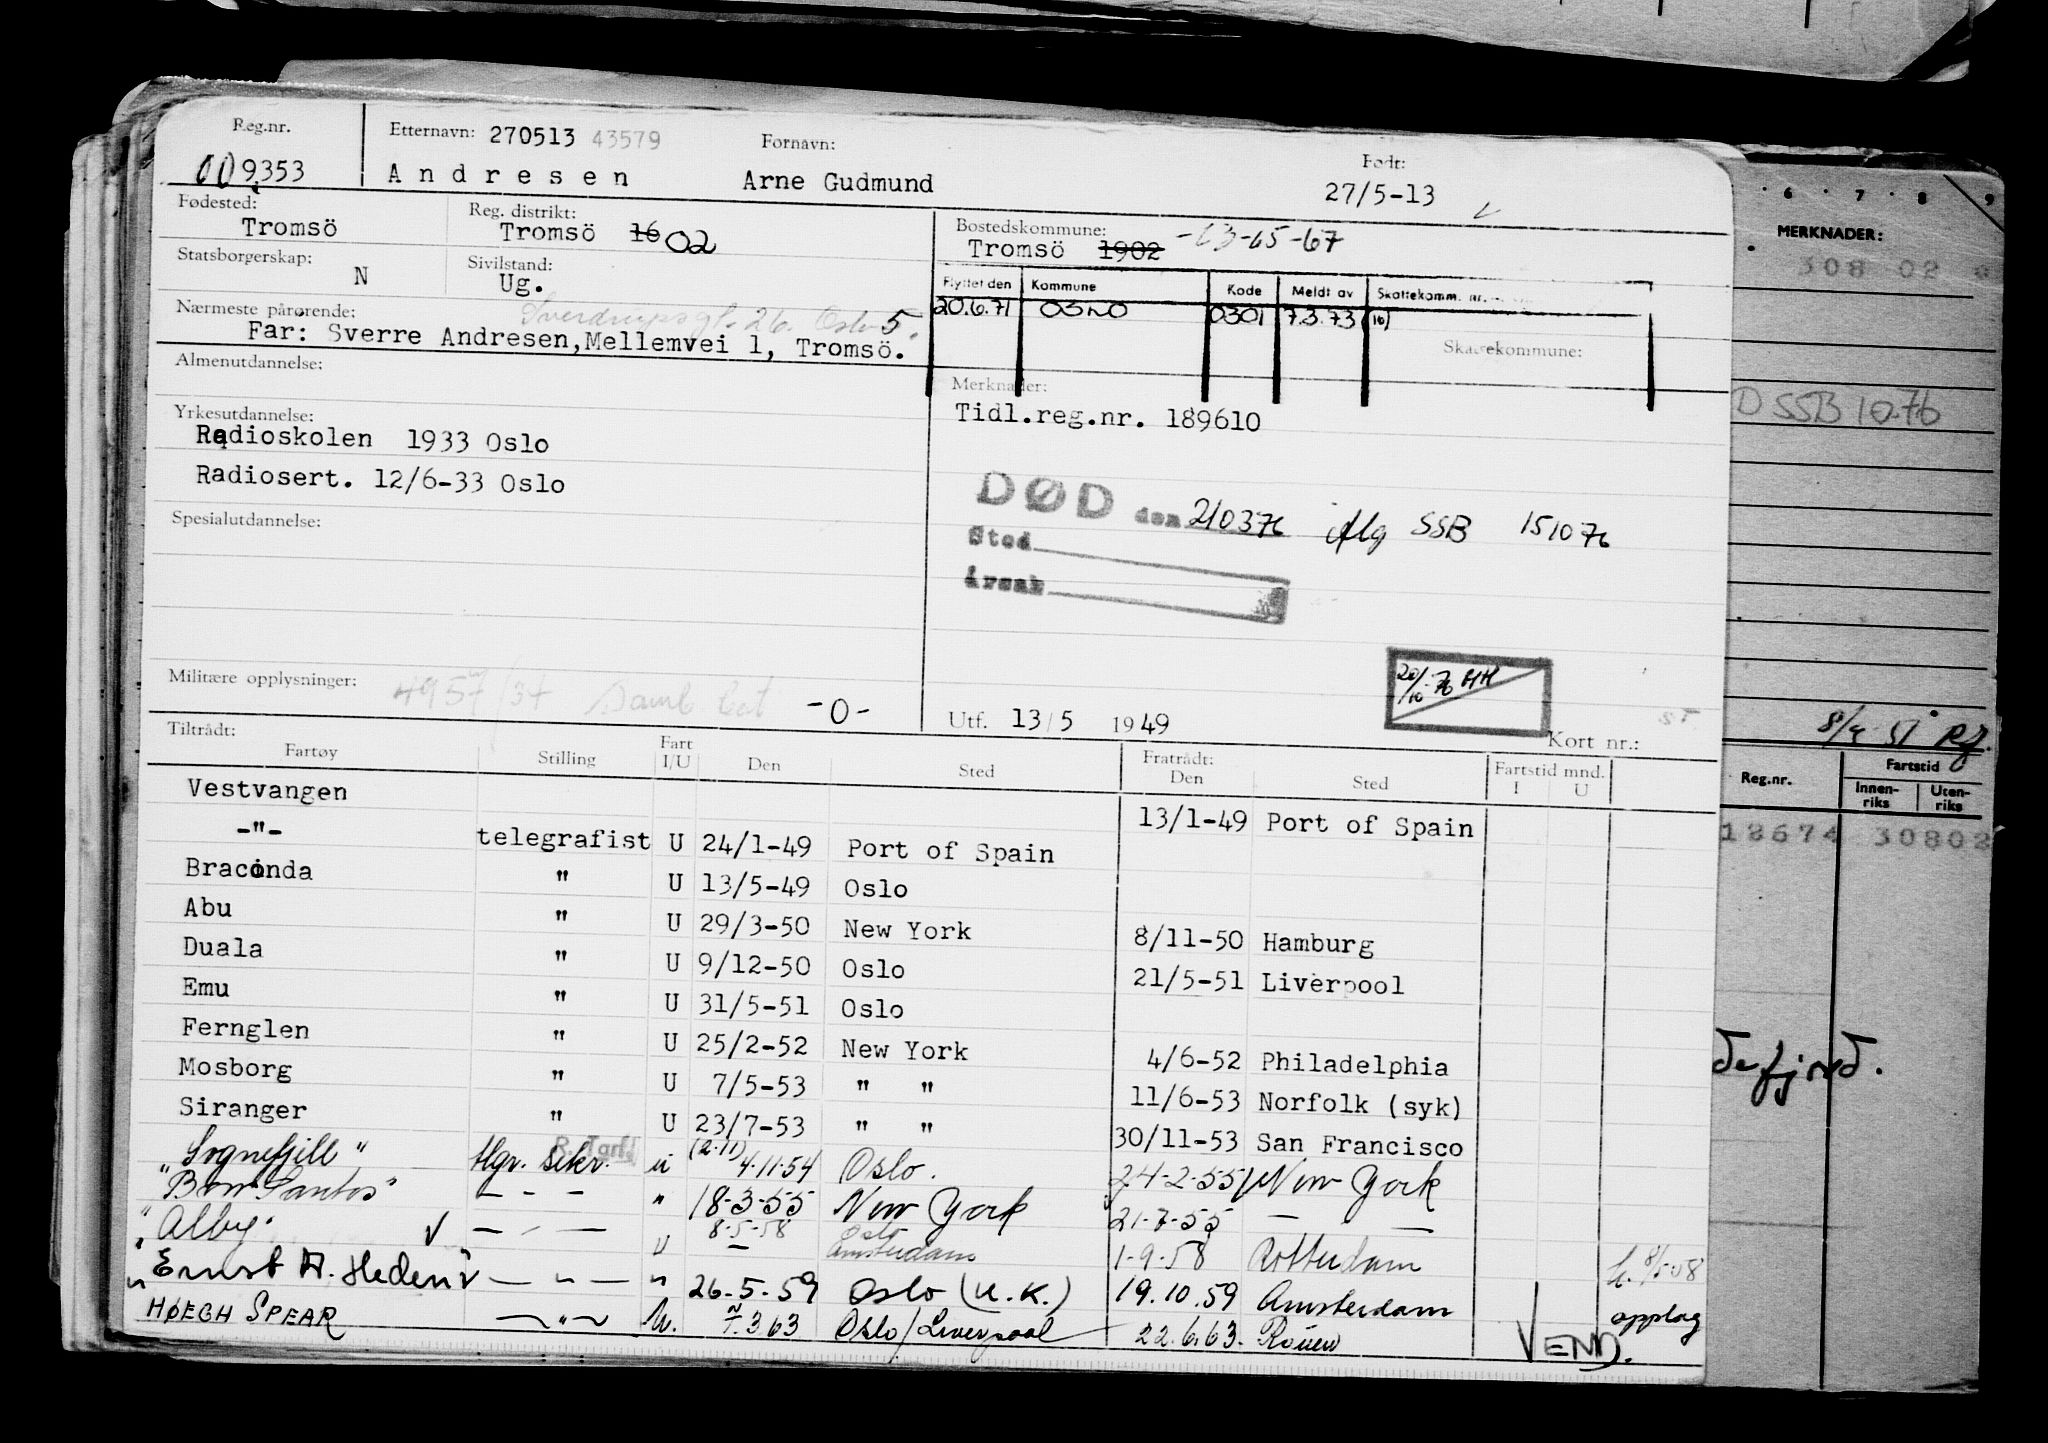 Reg.nr. Etternavn: 270513 43579 Fornavn: Født:
009353 Andresen Arne Gudmund 27/5-13
Fødested: Reg. distrikt: Bostedskommune:
Tromsö Tromsö 16 02 Tromsö 1902 -13-65-67
Statsborgerskap: N Sivilstand: Ug.
Flyttet den Kommune Kode Meldt av Skattekomm. nr.
20.6.71 OSLO 0301 7.3.73 (10)
Nærmeste pårørende: Sverdrupsgt. 26. Oslo 5.
Far: Sverre Andresen, Mellemvei 1, Tromsö.
Skattekommune:
Almenutdannelse: Merknader:
Tidl.reg.nr. 189610
Yrkesutdannelse:
Radioskolen 1933 Oslo
Radiosert. 12/6-33 Oslo
DØD den 210376 flg SSB 151076
Sted
Årsak
Spesialutdannelse:
20/10-76 HH
Militære opplysninger: 4957/37 Samb -0-
Utf. 13/5 1949 Kort nr.:
Tiltrådt: Fratrådt:
Fartøy Stilling Fart I/U Den Sted Den Sted Fartstid mnd. I U
Vestvangen 13/1-49 Port of Spain
-"- telegrafist U 24/1-49 Port of Spain
Braconda " U 13/5-49 Oslo
Abu " U 29/3-50 New York 8/11-50 Hamburg
Duala " U 9/12-50 Oslo 21/5-51 Liverpool
Emu " U 31/5-51 Oslo
Fernglen " U 25/2-52 New York 4/6-52 Philadelphia
Mosborg " U 7/5-53 " " 11/6-53 Norfolk (syk)
Siranger " U 23/7-53 " " 30/11-53 San Francisco
"Sognefjell" tlgr. sekr. R.Tgrf. u (2.11) 4.11.54 Oslo. 24-2-55 New York
"Bow Santos" - - - " 18-3-55 New York 21-7-55 — —
"Alby" V — - — U 8-5-58 Oslo
— Amsterdam 1-9-58 Rotterdam
"Ernst A. Heden" — " — " 26-5-59 Oslo (U.K.) 19.10.59 Amsterdam opplag
HØEGH SPEAR — " — U. 7.3.63 Oslo/Liverpool 22.6.63. Rouen VEND.
6 7 8 9
MERKNADER:
308 02
D SSB 10.76
Reg.nr. Fartstid
Innenriks Utenriks
18674 30802
defjord.